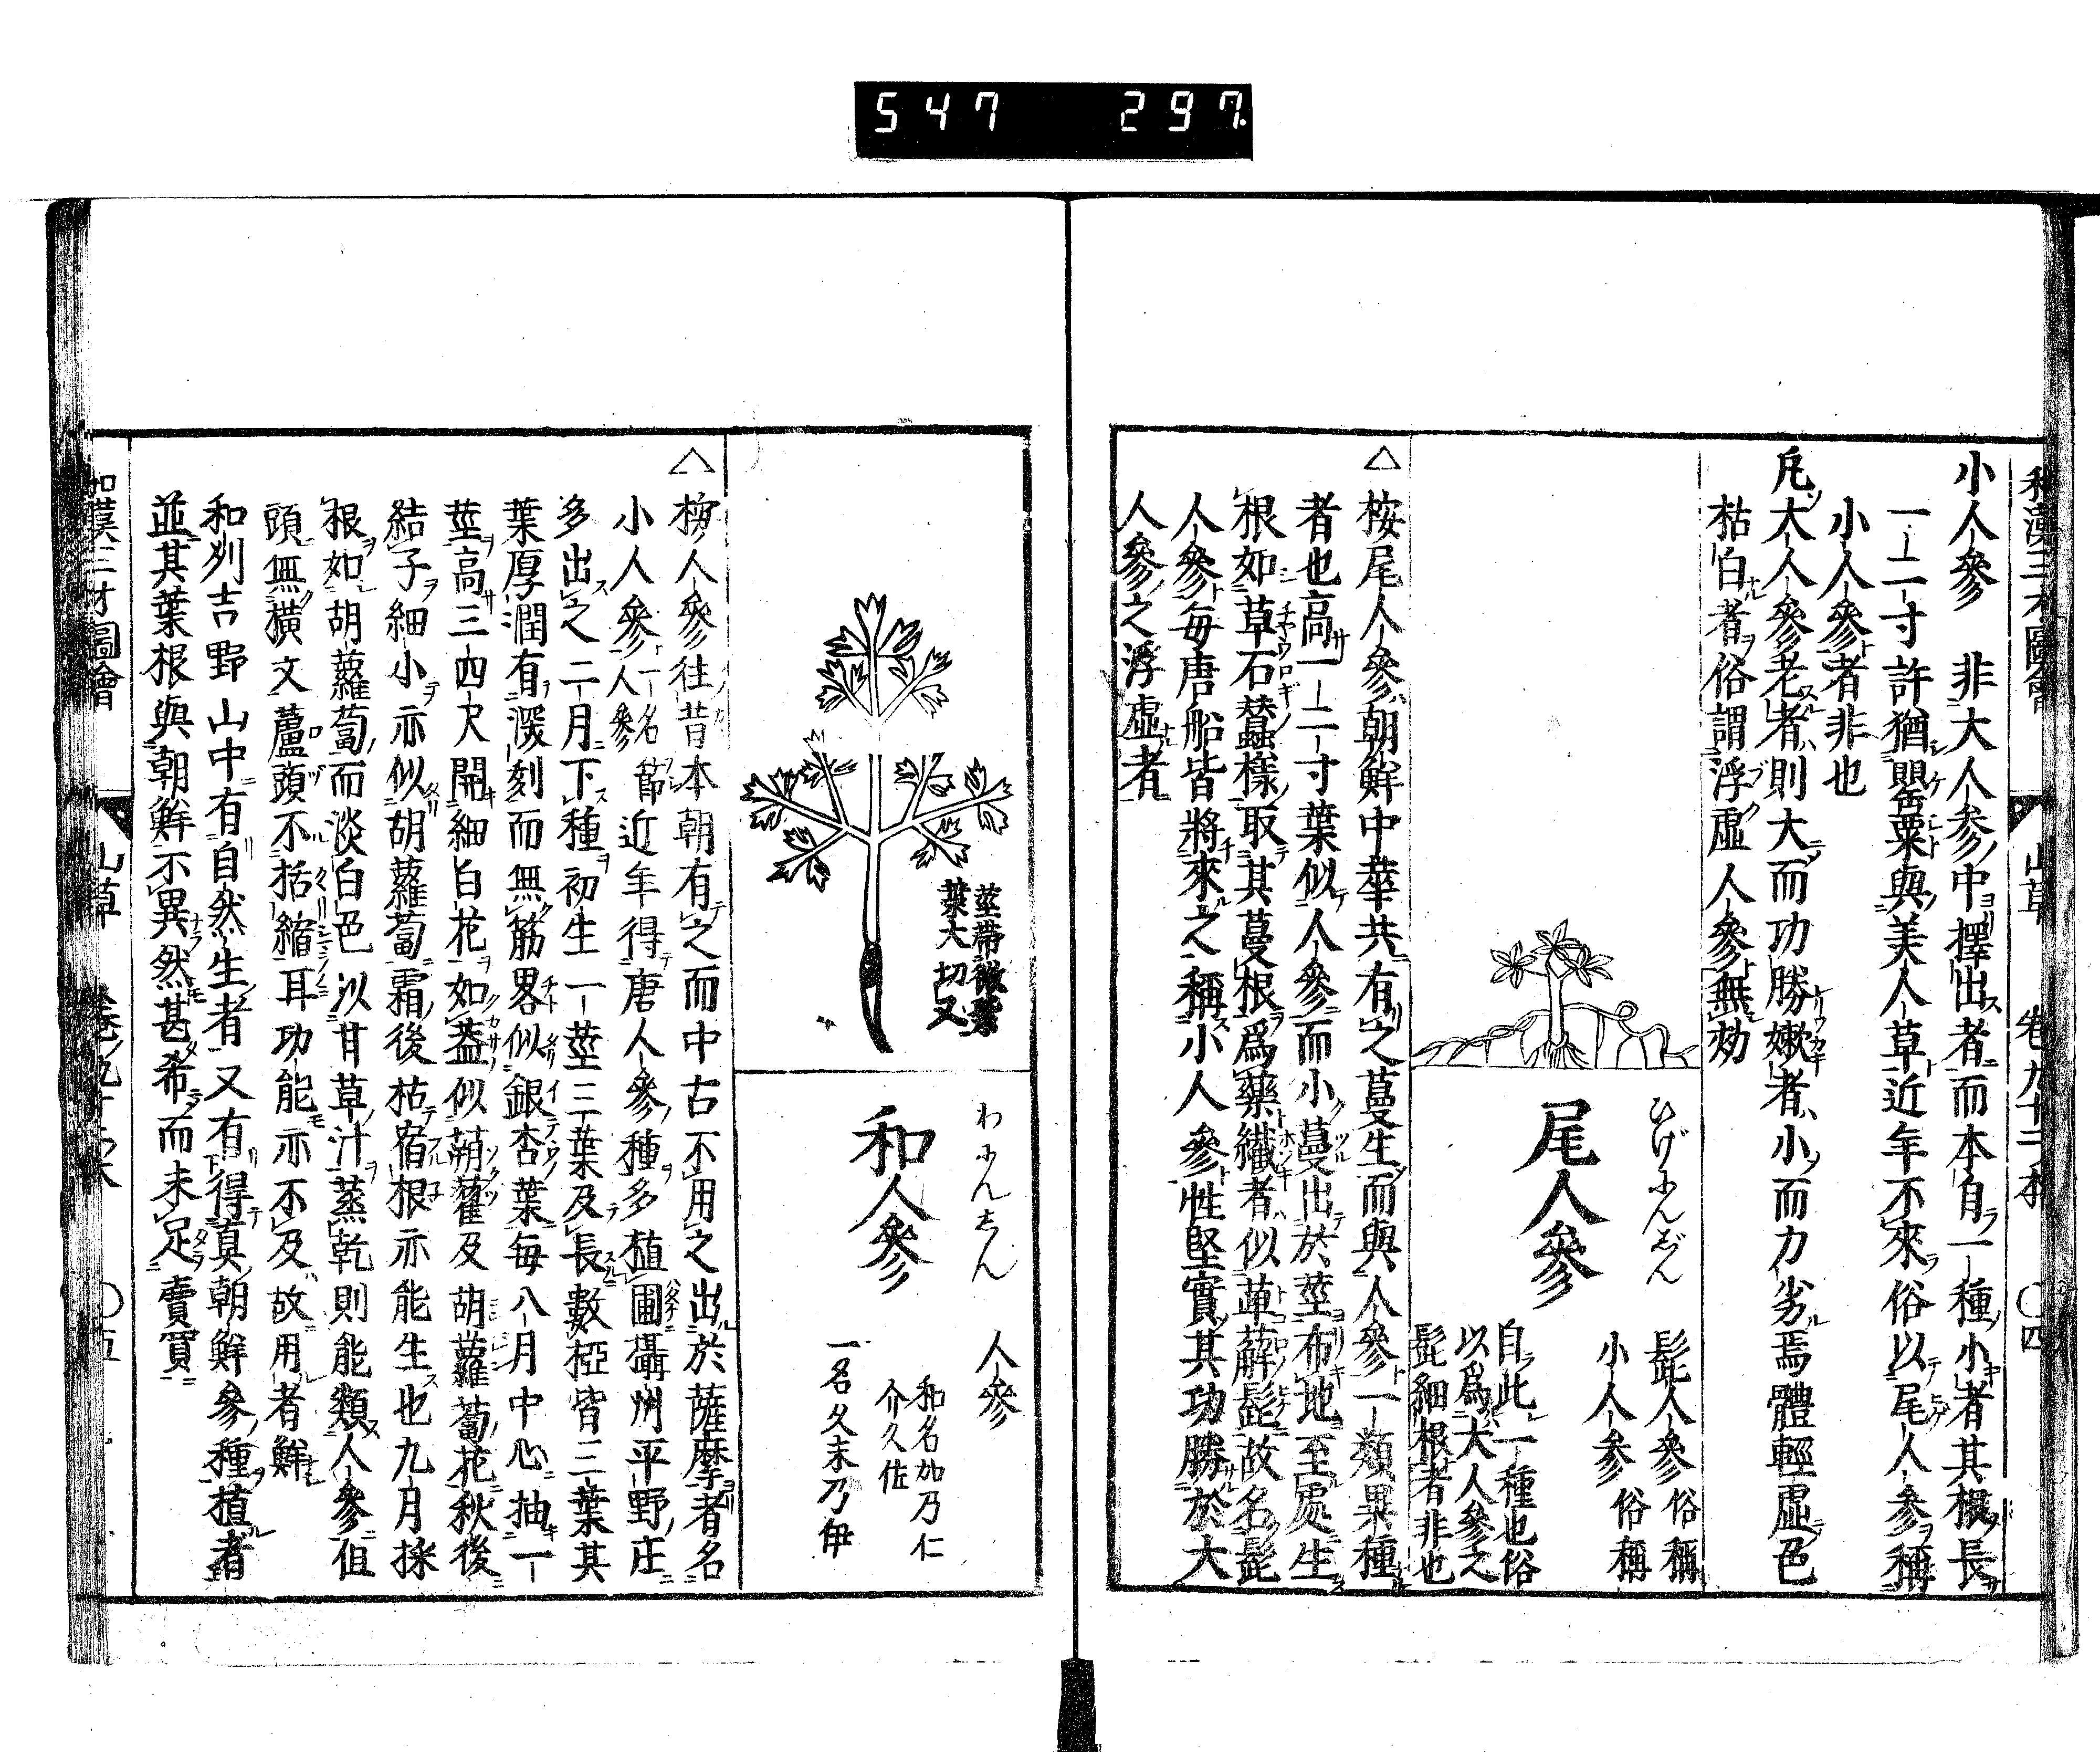 547 297
和漢三才圖會 山草 卷九十二本 〇四
小人參 非大人參中擇出者而本自一種小者其根長
一二寸許猶罌粟與美人草近年不來俗以尾人參稱
小人參者非也
凡大人參老者則大而功勝嫩者小而力劣焉體輕虛色
枯白者俗謂浮虛人參無効
ひげにんじん
尾人參
髭人參 俗稱
小人參 俗稱
自此一種也俗
以爲大人參之
髭細根者非也
△
按尾人參朝鮮中華共有之蔓生而與人參一類異種
者也高一二寸葉似人參而小蔓出於莖布地至處生
根如草石蠶樣取其蔓根爲藥纎者似萆薢髭故名髭
人參毎唐船皆將來之稱小人參性堅實其功勝於大
人參之浮虛者
莖帶微紫
葉大切又
わにんじん
和人參
人參
和名加乃仁
介久佐
一名久末乃伊
△
按人參往昔本朝有之而中古不用之出於薩摩者名
小人參 一名人參 節 近年得唐人參種多植圃攝州平野庄
多出之二月下種初生一莖三葉及長數椏皆三葉其
葉厚潤有深刻而無筋畧似銀杏葉毎八月中心抽一
莖高三四尺開細白花如葢似蒴藋及胡蘿蔔花秋後
結子細小亦似胡蘿蔔霜後枯宿根亦能生也九月採
根如胡蘿蔔而淡白色以甘草汁蒸乾則能類人參但
頭無橫文蘆頭不括縮耳功能亦不及故用者鮮
和刕吉野山中有自然生者又有得真朝鮮參種植者
並其葉根與朝鮮不異然甚希而未足賣買
和漢三才圖會 山草 卷ノ九十二本 〇五